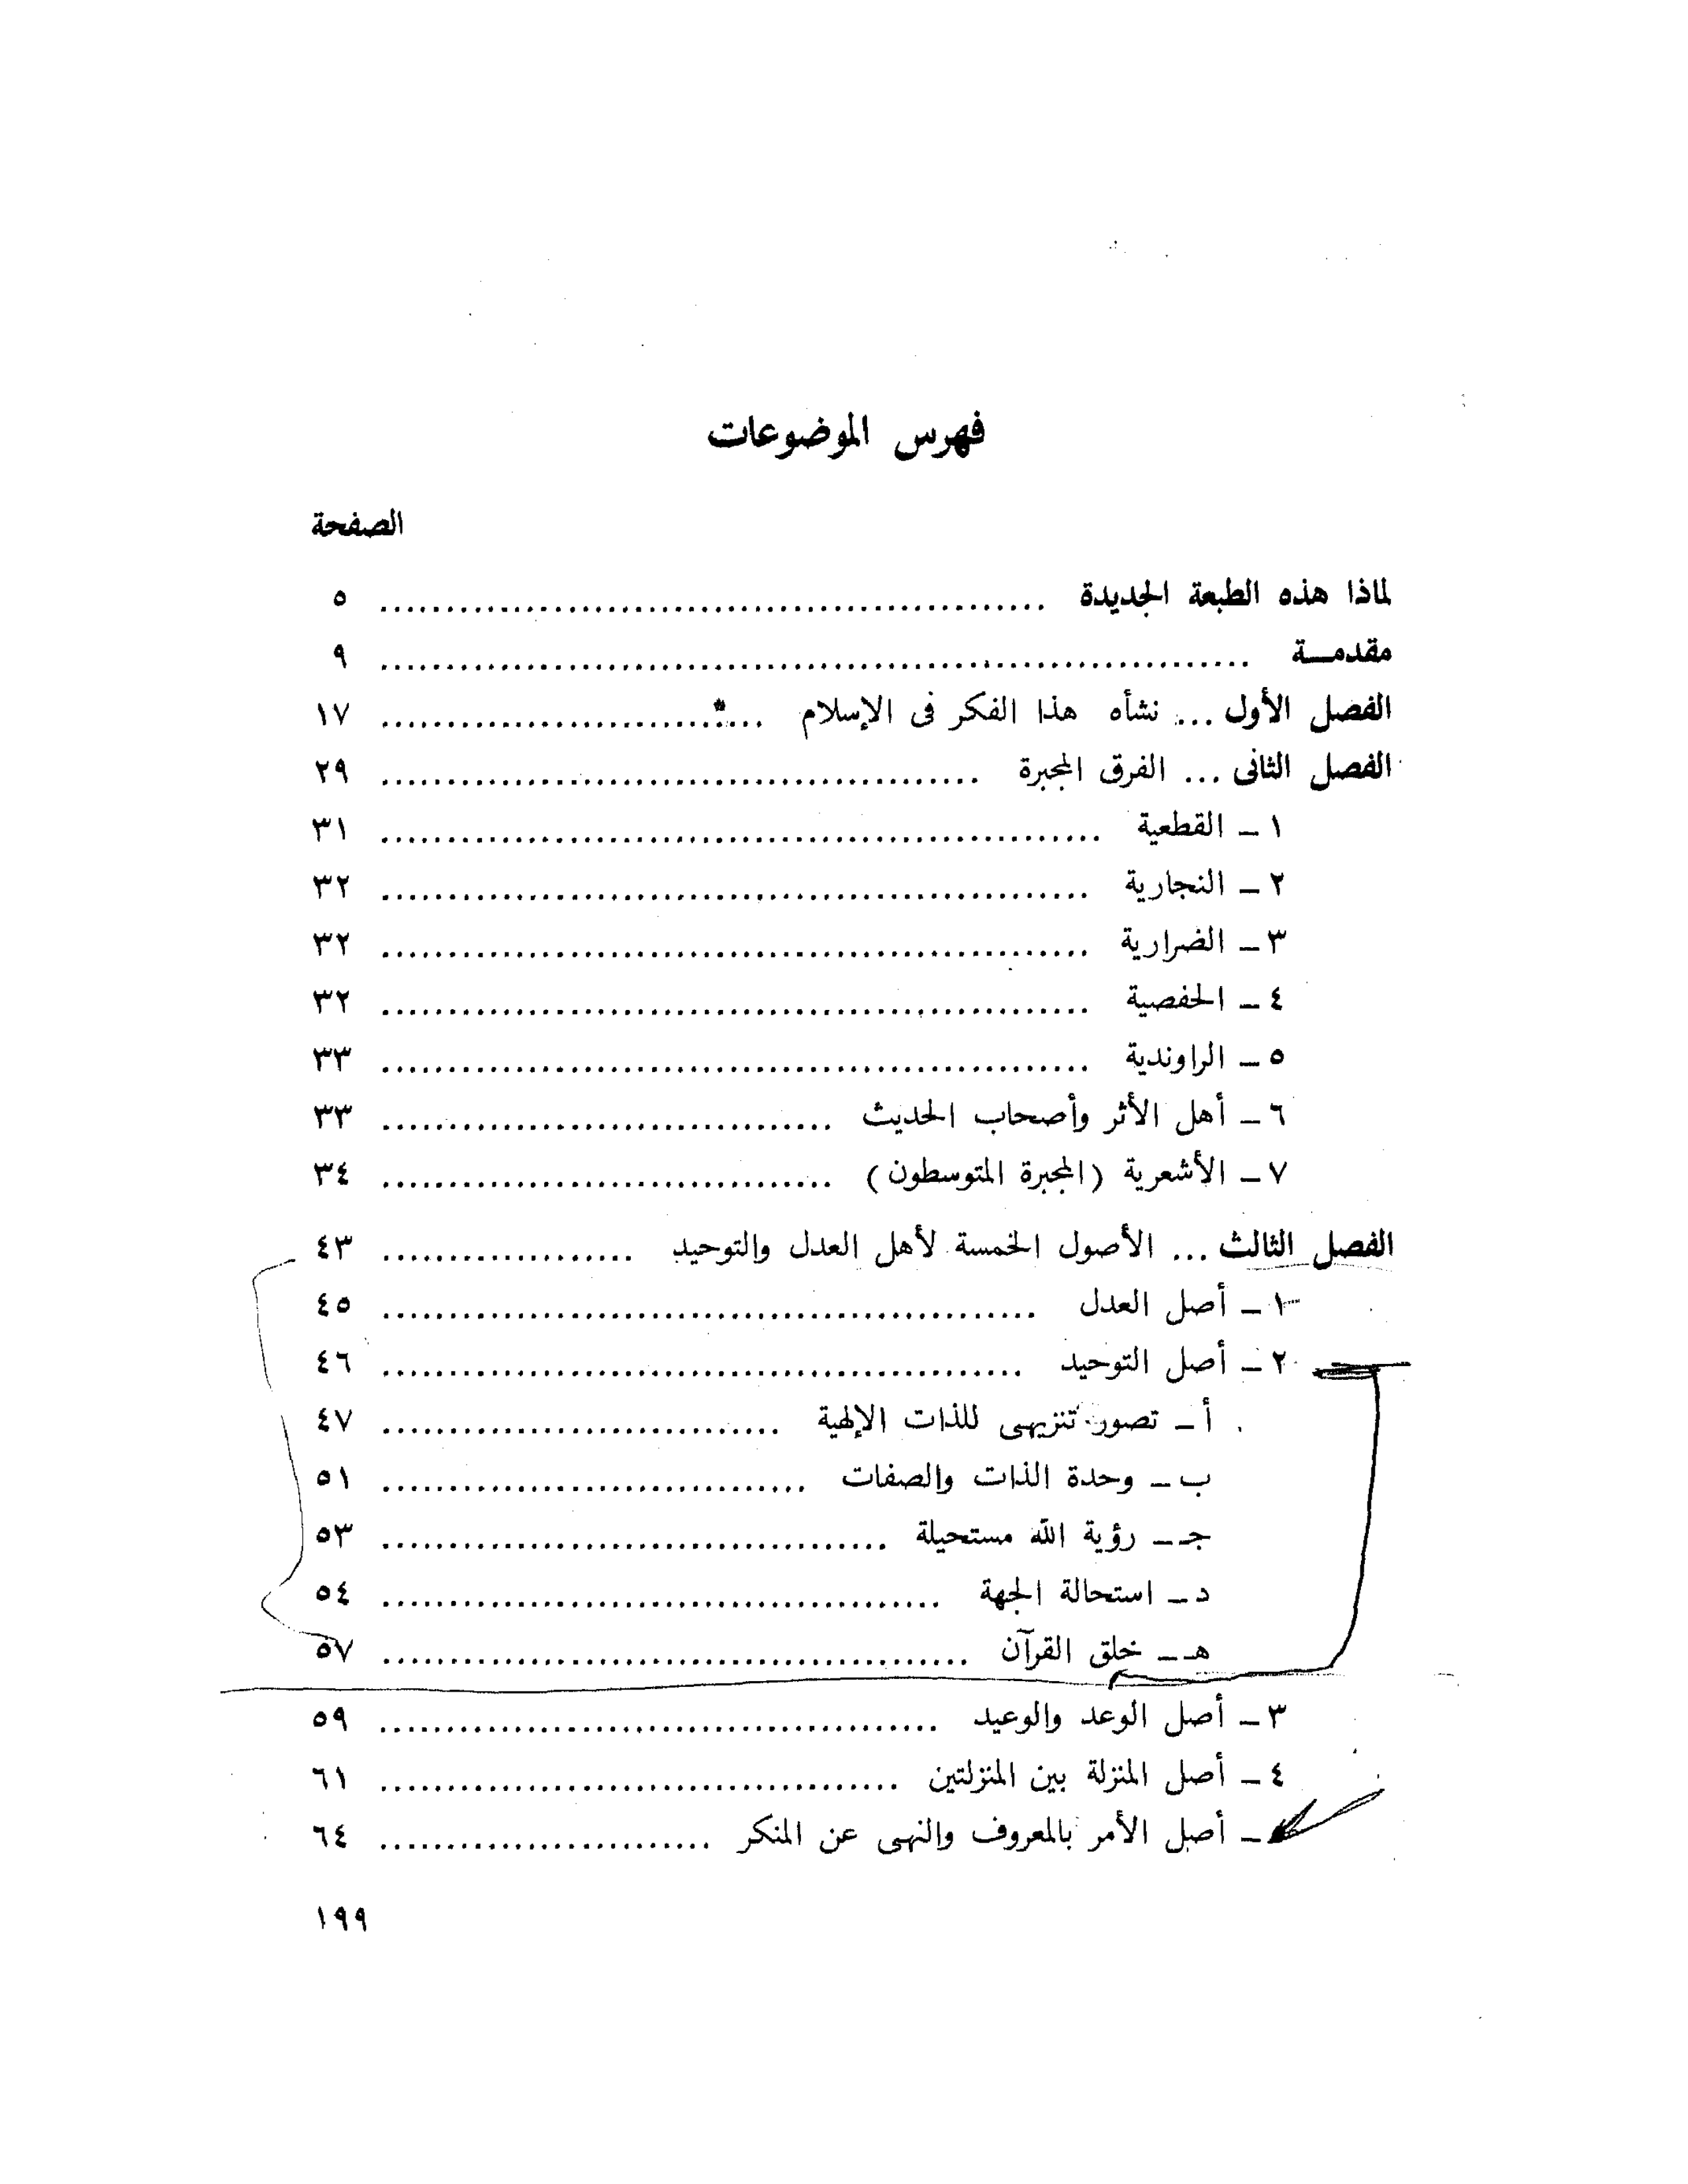 فهرس الموضوعات
الصفحة
لماذا هذه الطبعة الجديدة .................................................. ٥
مقدمـــة .................................................................. ٩
الفصل الأول ... نشأه هذا الفكر فى الإسلام ............................. ١٧
الفصل الثانى ... الفرق المجبرة ............................................. ٢٩
١ ــ القطعية ...................................................... ٣١
٢ ــ النجارية ..................................................... ٣٢
٣ ــ الضرارية ..................................................... ٣٢
٤ ــ الحفصية ..................................................... ٣٢
٥ ــ الراوندية ..................................................... ٣٣
٦ ــ أهل الأثر وأصحاب الحديث .................................. ٣٣
٧ ــ الأشعرية (المجبرة المتوسطون) .................................. ٣٤
الفصل الثالث ... الأصول الخمسة لأهل العدل والتوحيد ................... ٤٣
١ ــ أصل العدل ................................................. ٤٥
٢ ــ أصل التوحيد ................................................ ٤٦
أ ــ تصور تنزيهى للذات الإلهية .............................. ٤٧
ب ــ وحدة الذات والصفات ................................ ٥١
جـ ــ رؤية الله مستحيلة ...................................... ٥٣
د ــ استحالة الجهة .......................................... ٥٤
هـ ــ خلق القرآن ............................................ ٥٧
٣ ــ أصل الوعد والوعيد .......................................... ٥٩
٤ ــ أصل المنزلة بين المنزلتين ....................................... ٦١
ــ أصل الأمر بالمعروف والنهى عن المنكر ......................... ٦٤
١٩٩